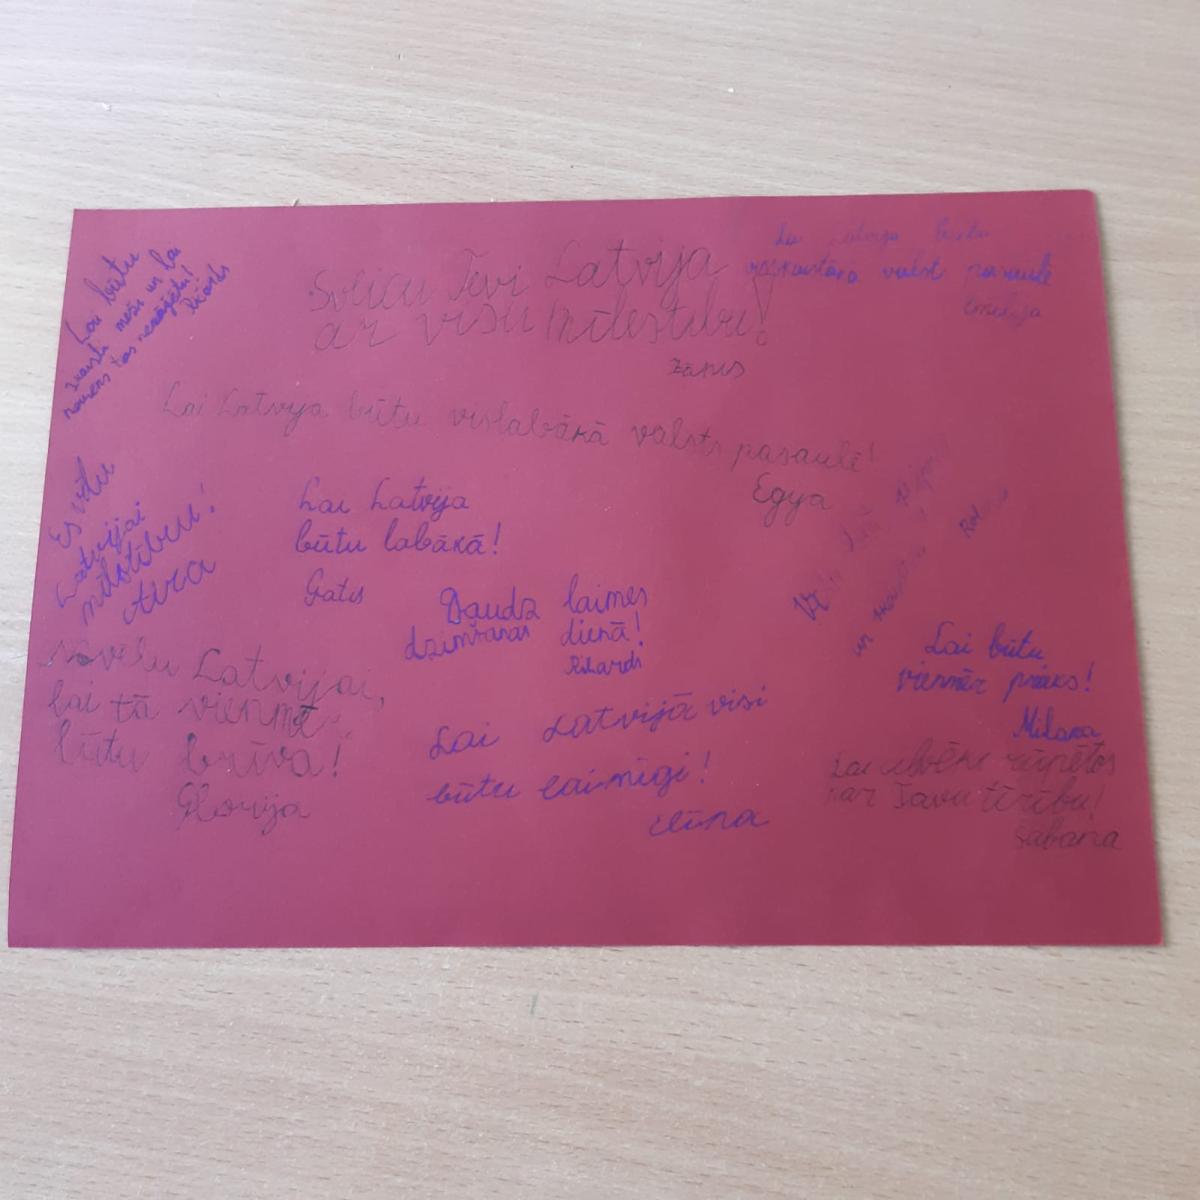 Lai būtu
skaisti meži un lai
neviens tos nezāģētu!
Rikards
Sveicu Tevi Latvija
ar visu mīlestību!
Žanis
Lai Latvija būtu
visskaistākā valst pasaulē
Emīlija
Lai Latvija būtu vislabākā valsts pasaulē!
Egija
Es vēlu
Latvijai
mīlstību!
Aira
Lai Latvija
būtu labākā!
Gatis
Daudz laimes
dzimšanas dienā!
Rihards
un
Lai būtu
vienmēr prieks!
Milana
Novēlu Latvijai,
lai tā vienmēr
būtu brīva!
Glorija
Lai Latvijā visi
būtu laimīgi!
Elīna
Lai cilvēki rūpētos
par Tavu tīrību!